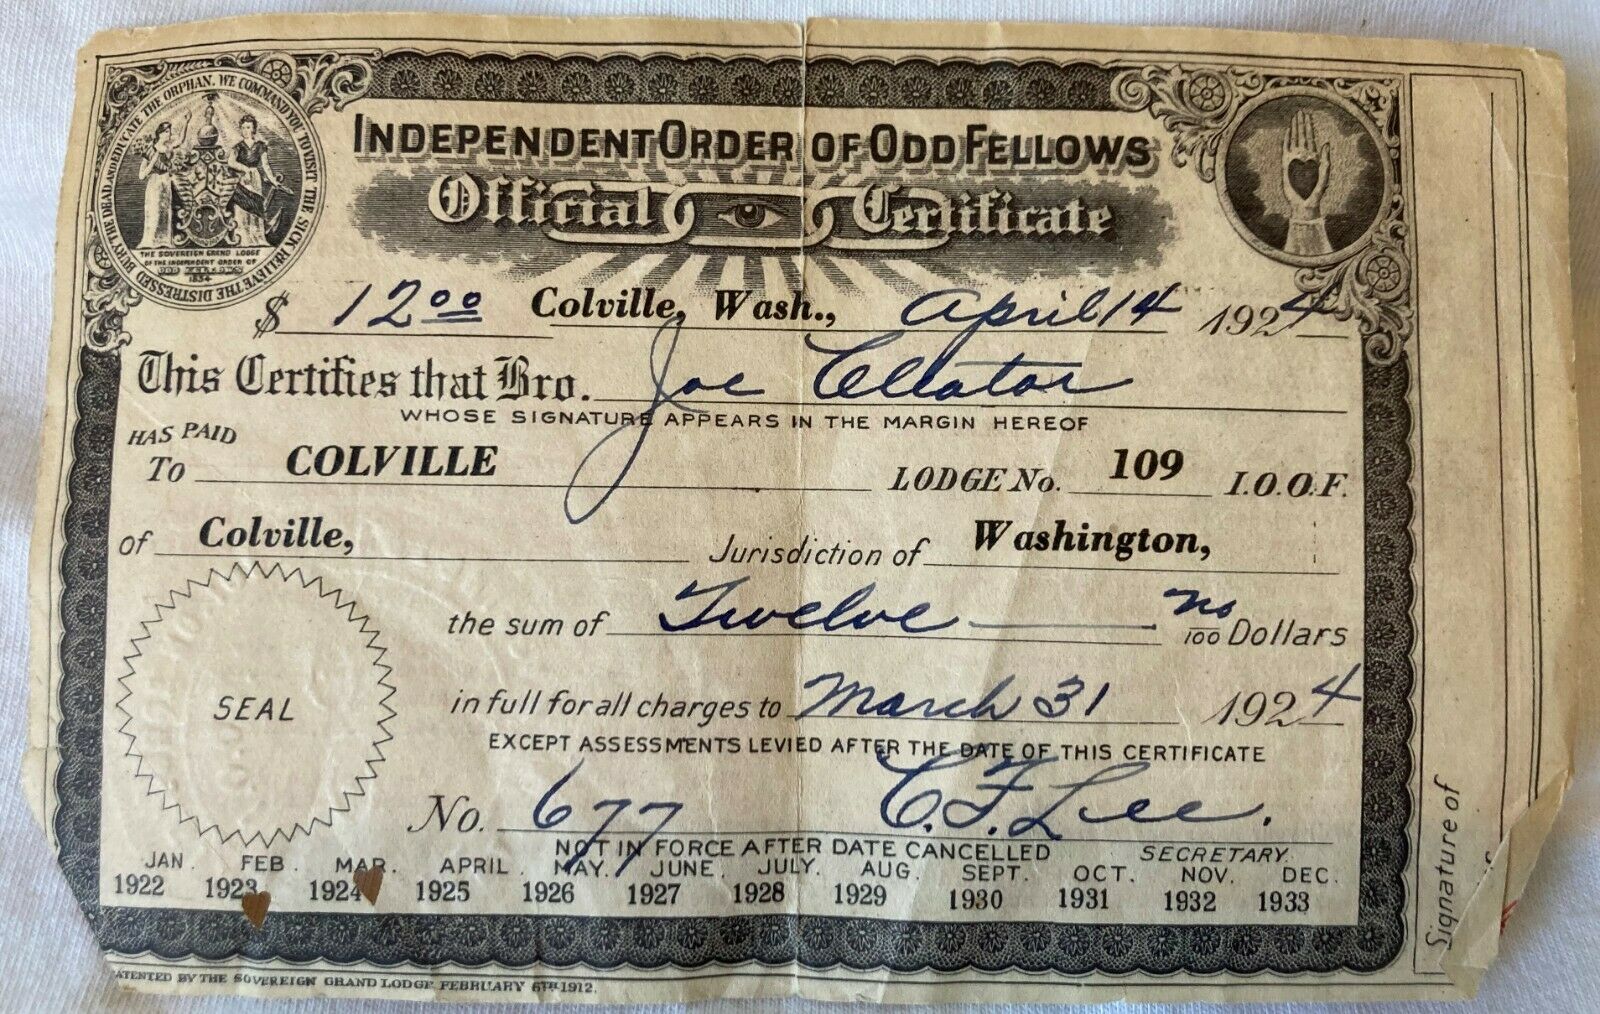 BURY THE DEAD AND EDUCATE THE ORPHAN. WE COMMAND YOU TO VISIT THE SICK RELIEVE THE DISTRESSED
THE SOVEREIGN GRAND LODGE
OF THE INDEPENDENT ORDER OF
ODD FELLOWS
1834
INDEPENDENT ORDER OF ODD FELLOWS
Official Certificate
$ 12 00 Colville, Wash., April 14 1924
This Certifies that Bro. Joe Cleator
WHOSE SIGNATURE APPEARS IN THE MARGIN HEREOF
HAS PAID
To COLVILLE LODGE No. 109 I.O.O.F.
of Colville, Jurisdiction of Washington,
the sum of Twelve no/100 Dollars
in full for all charges to March 31 1924
EXCEPT ASSESSMENTS LEVIED AFTER THE DATE OF THIS CERTIFICATE
SEAL
No. 677 C. F. Lee.
NOT IN FORCE AFTER DATE CANCELLED SECRETARY.
JAN. FEB. MAR. APRIL. MAY. JUNE. JULY. AUG. SEPT. OCT. NOV. DEC.
1922 1923 1924 1925 1926 1927 1928 1929 1930 1931 1932 1933
ATENTED BY THE SOVEREIGN GRAND LODGE FEBRUARY 6TH 1912.
Signature of